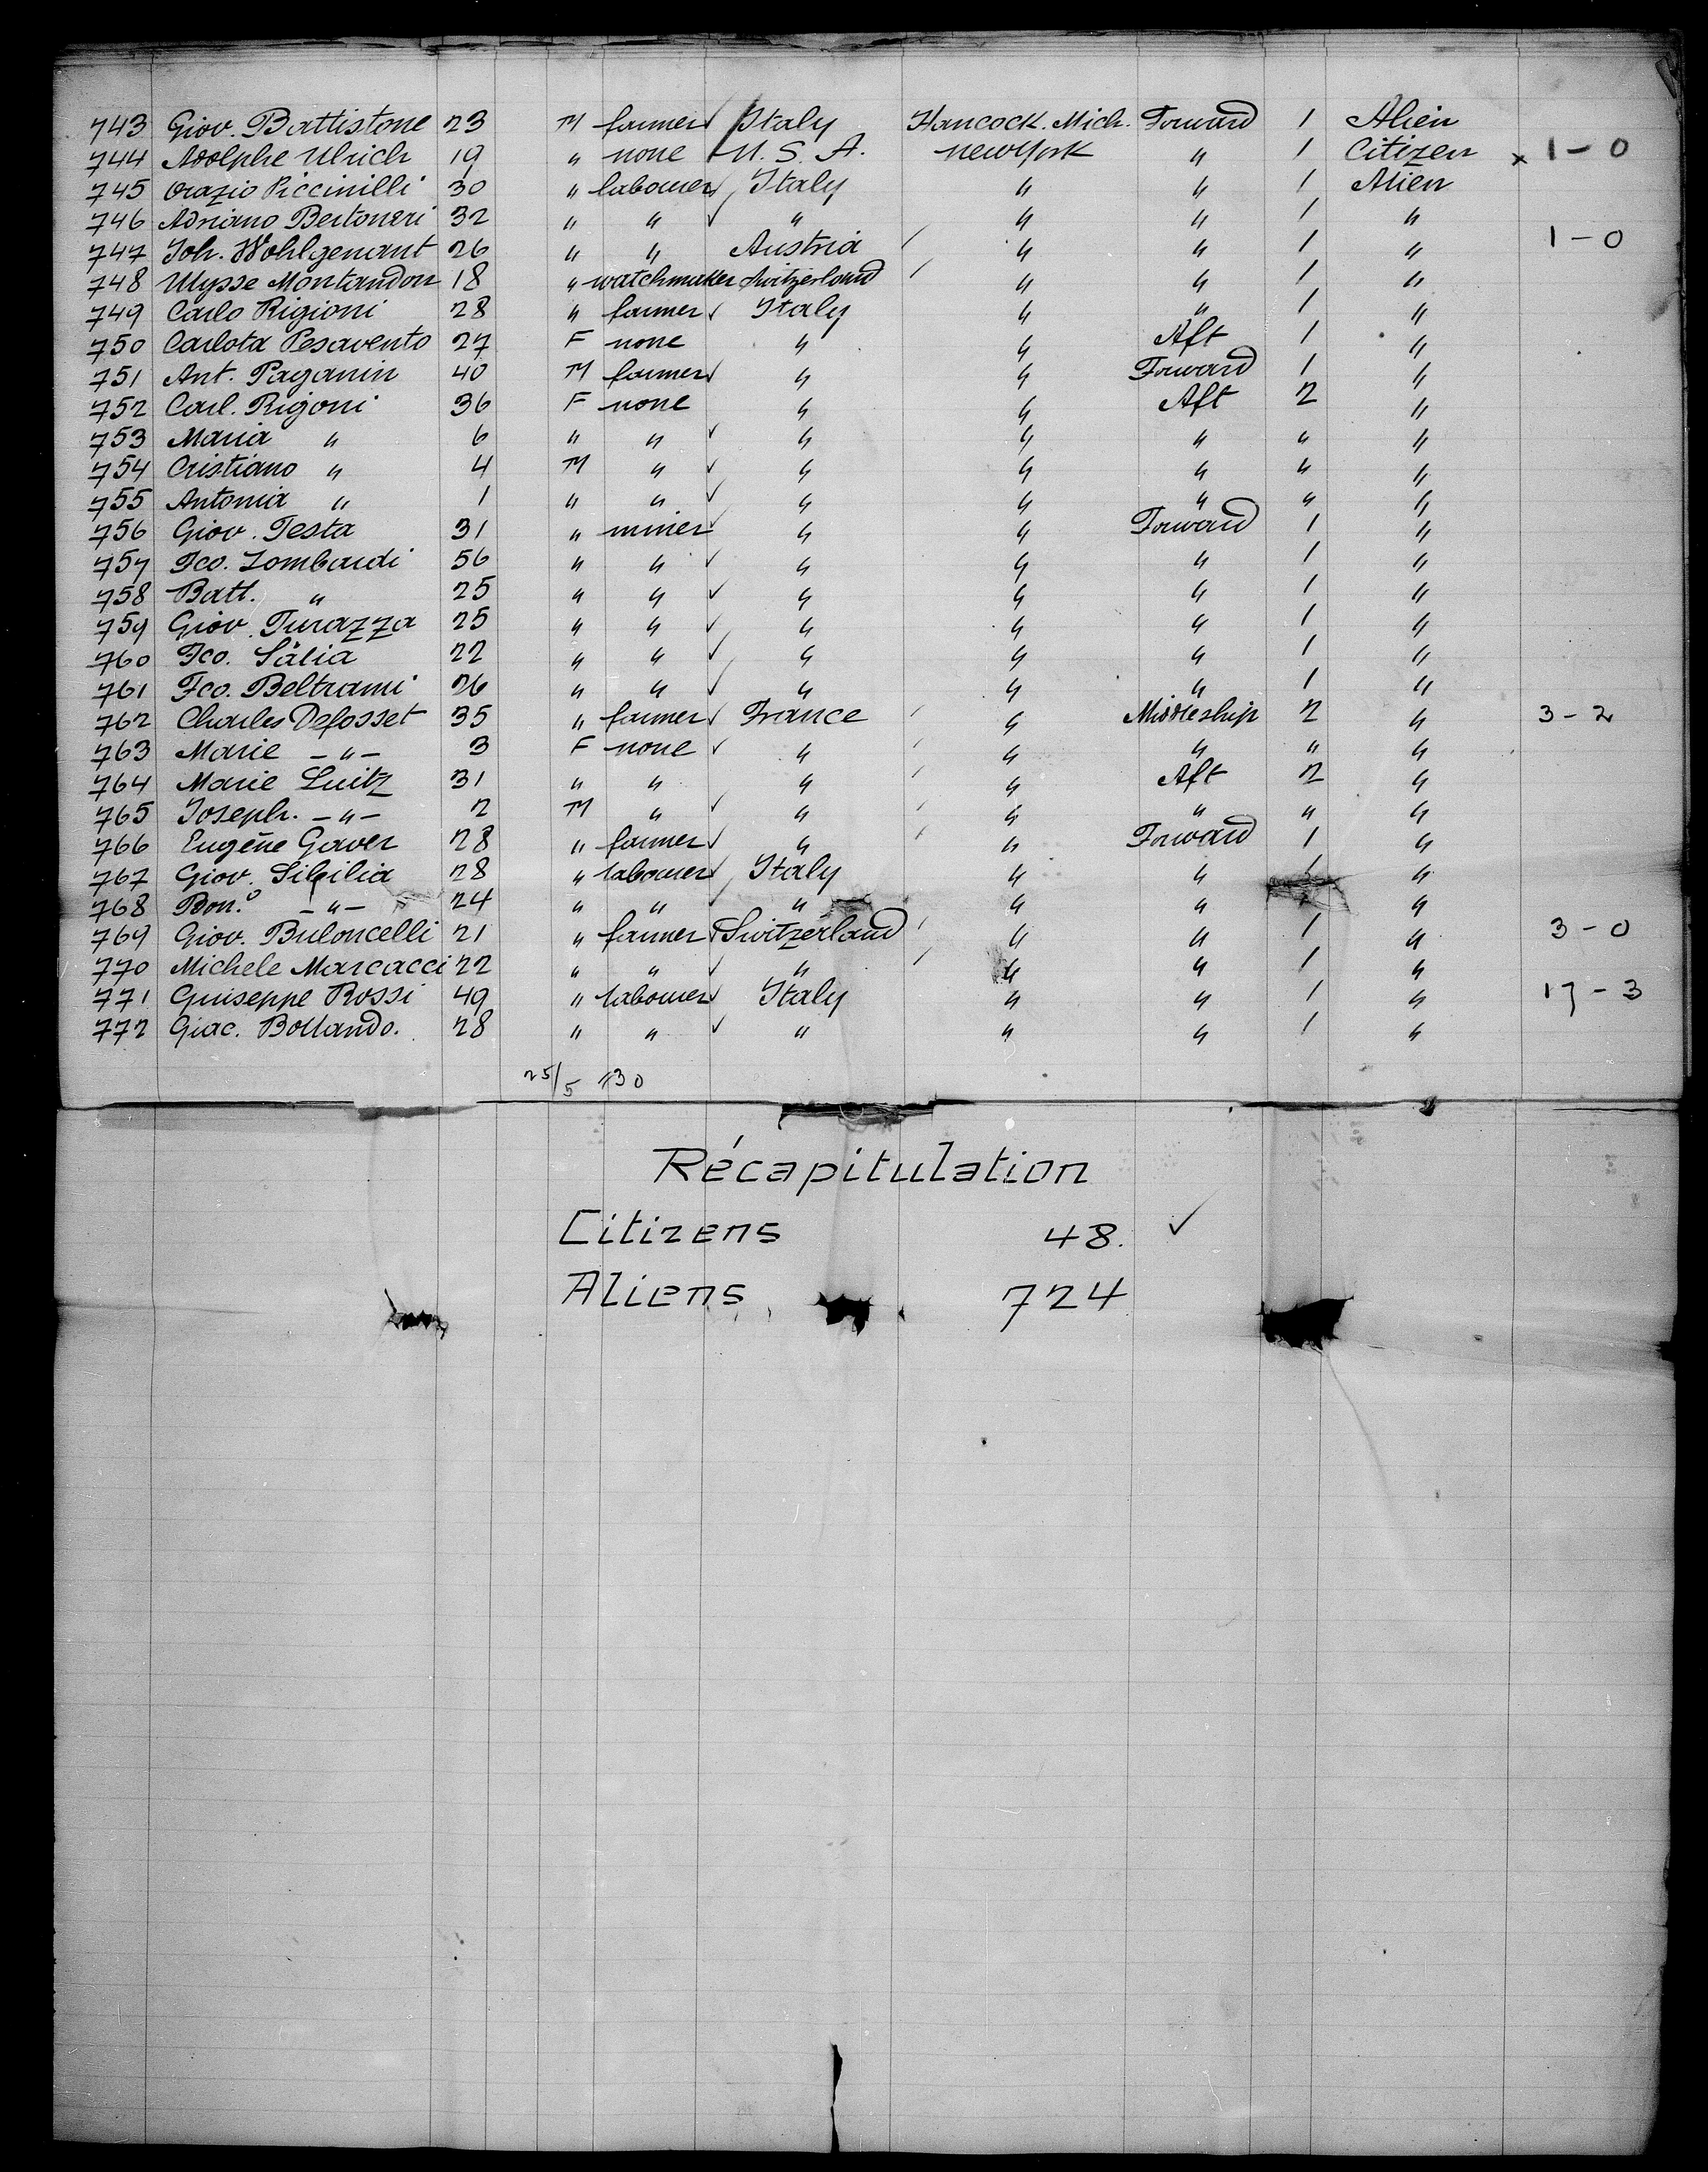 743 Giov. Battistone 23 M farmer ✓ Italy Hancock. Mich. Forward 1 Alien
744 Adolphe Ulrich 19 " none U. S. A. New York " 1 Citizen x 1 - 0
745 Orazio Piccinilli 30 " labourer ✓ Italy " " 1 Alien
746 Adriano Bertoneri 32 " " ✓ " " " 1 "
747 Joh. Wohlgenant 26 " " Austria / " " 1 " 1 - 0
748 Ulysse Montandon 18 " watchmaker Switzerland / " " 1 "
749 Carlo Rigioni 28 " farmer ✓ Italy " " 1 "
750 Carlota Pesavento 27 F none " " Aft 1 "
751 Ant. Paganin 40 M farmer ✓ " " Forward 1 "
752 Carl. Rigoni 36 F none " " Aft 2 "
753 Maria " 6 " " ✓ " " " " "
754 Cristiano " 4 M " ✓ " " " " "
755 Antonia " 1 " " ✓ " " " " "
756 Giov. Testa 31 " miner ✓ " " Forward 1 "
757 Fco. Lombardi 56 " " ✓ " " " 1 "
758 Batt. " 25 " " ✓ " " " 1 "
759 Giov. Turazza 25 " " ✓ " " " 1 "
760 Fco. Sália 22 " " ✓ " " " 1 "
761 Fco. Beltrami 26 " " ✓ " " " 1 "
762 Charles Defosset 35 " farmer ✓ France / " Middleship 2 " 3 - 2
763 Marie - " - 3 F none ✓ " / " " " "
764 Marie Luitz 31 " " " / " Aft 2 "
765 Joseph. - " - 2 M " ✓ " / " " " "
766 Eugène Gaver 28 " farmer ✓ " / " Forward 1 "
767 Giov. Sibilia 28 " labourer ✓ Italy " " 1 "
768 Bon.o - " - 24 " " ✓ " " " "
769 Giov. Buloncelli 21 " farmer ✓ Switzerland / " " 1 " 3 - 0
770 Michele Marcacci 22 " " ✓ " / " " 1 "
771 Guiseppe Rossi 49 " labourer ✓ Italy " " 1 " 17 - 3
772 Giac. Bollando. 28 " " ✓ " " " 1 "
25/5 "30
Récapitulation
Citizens 48. ✓
Aliens 724